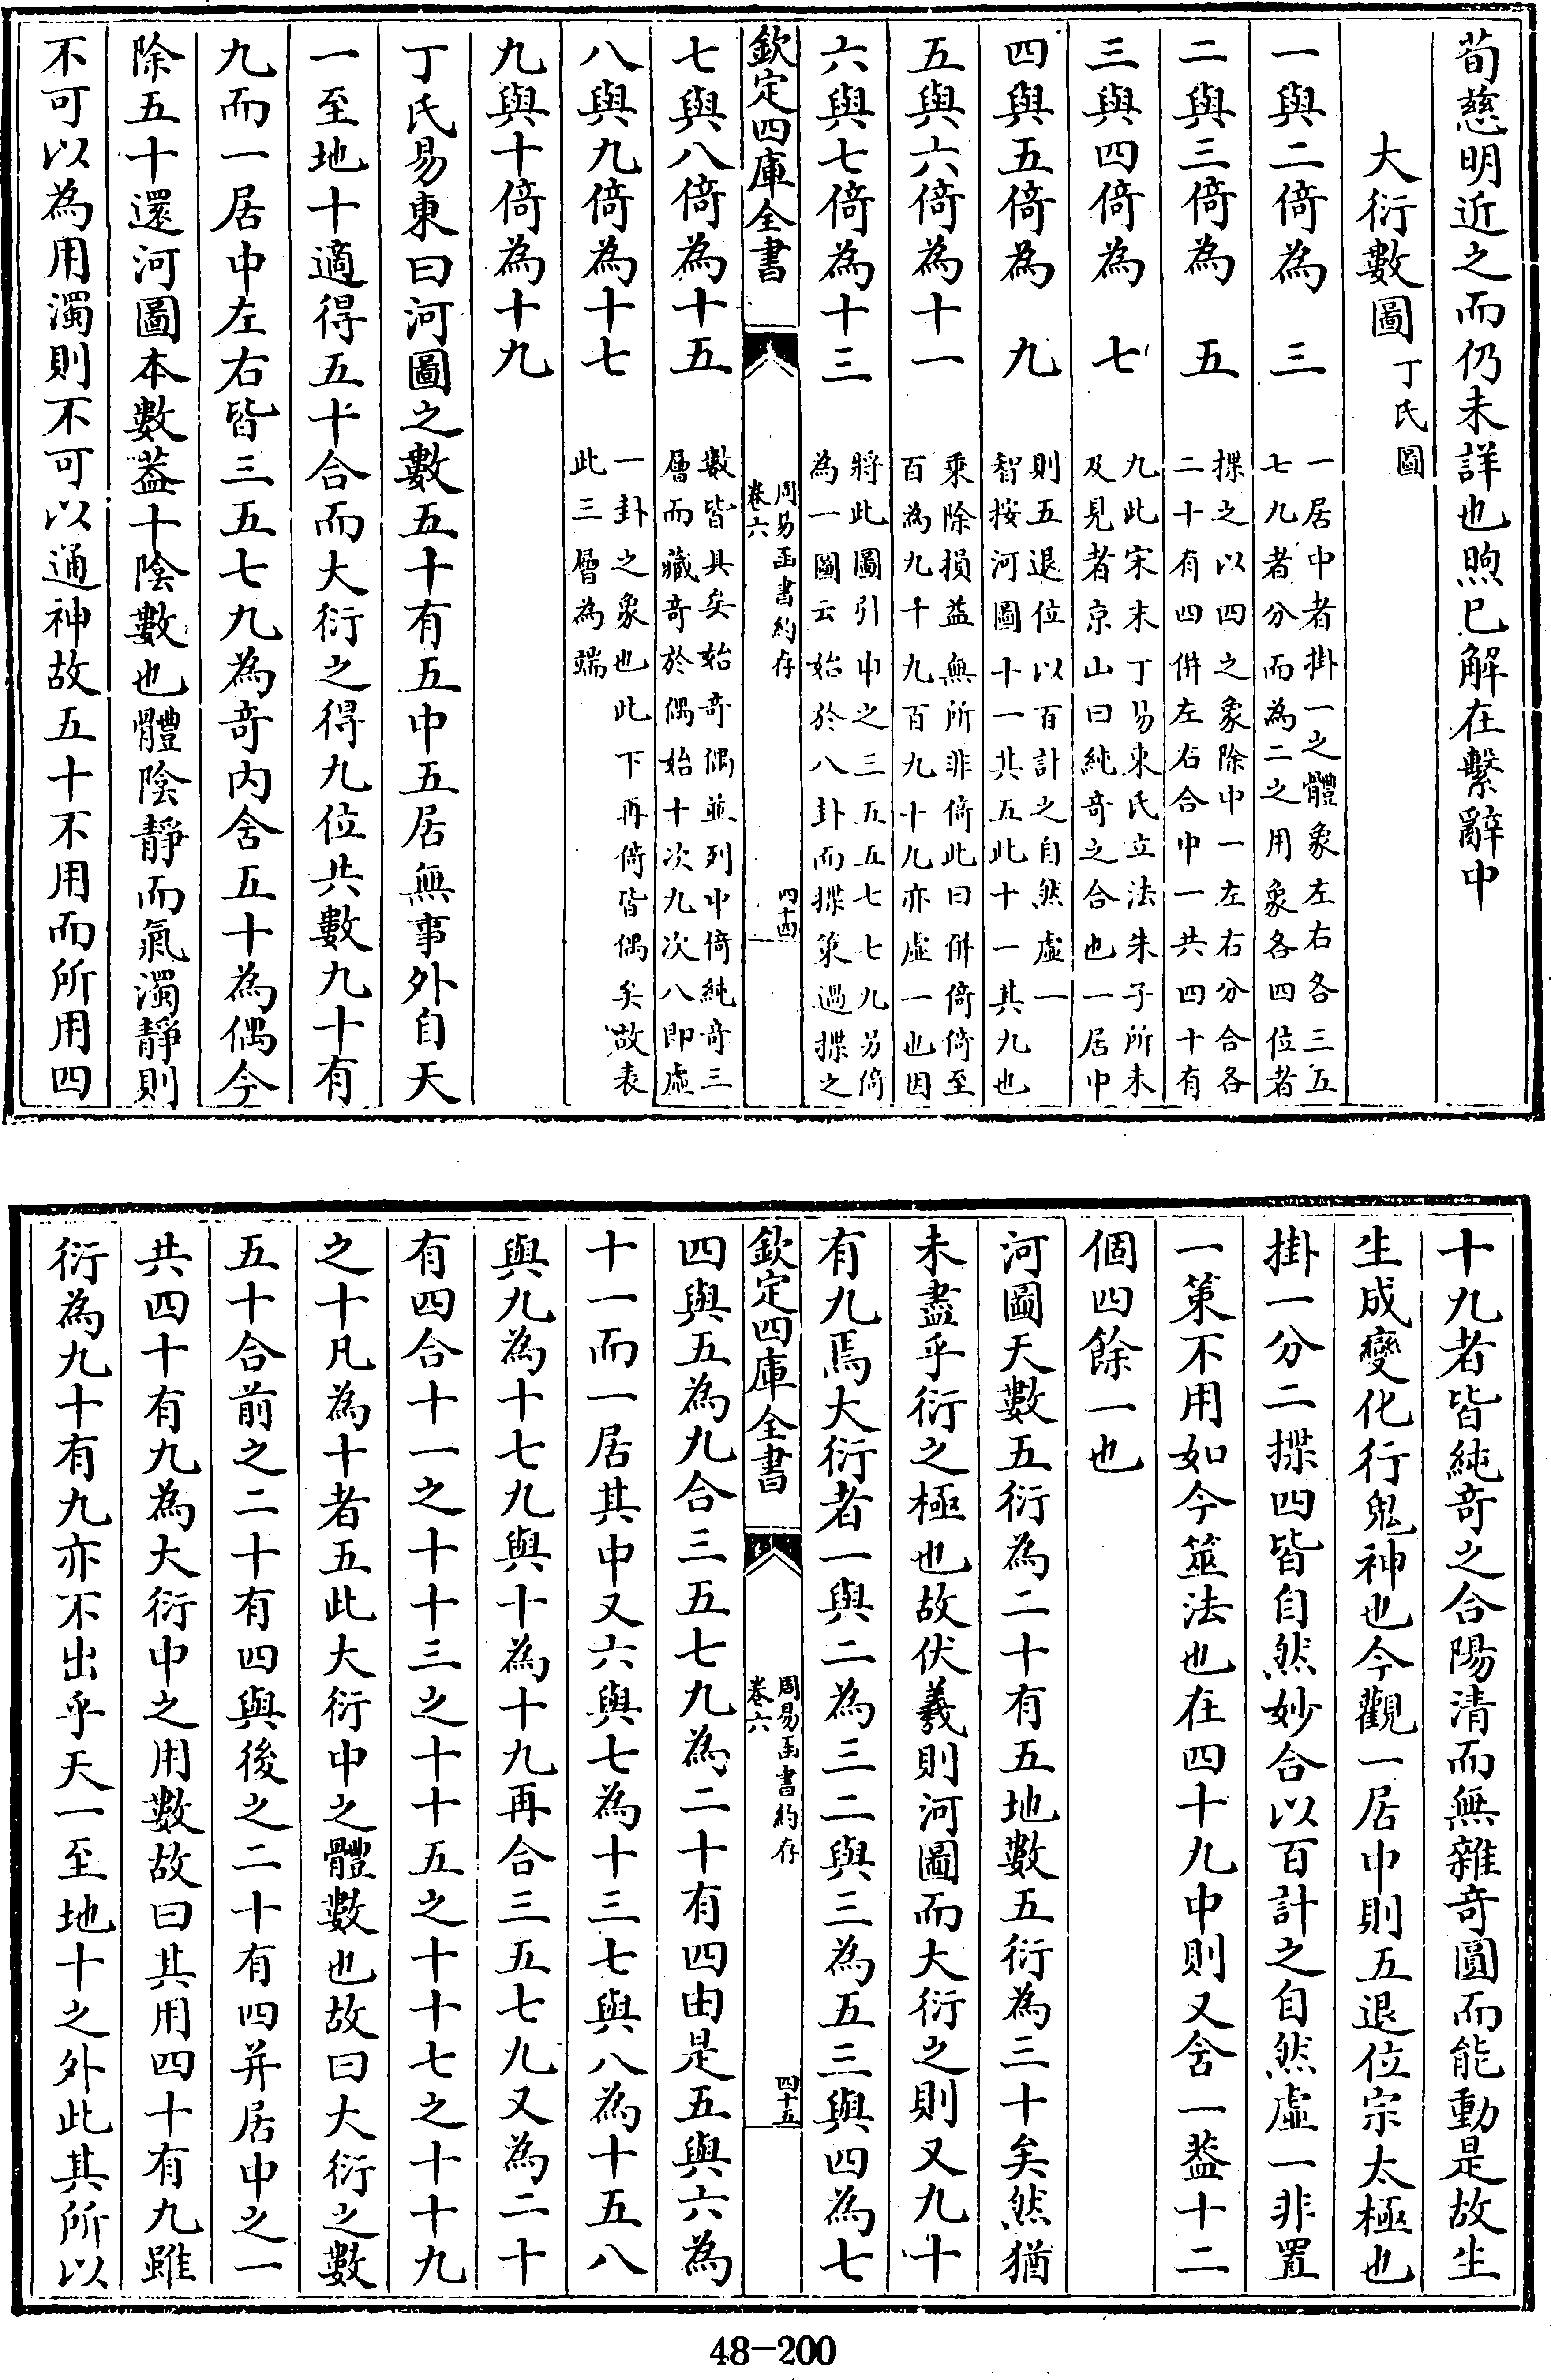 荀慈明近之而仍未詳也煦已解在繫辭中
大衍數圖丁氏圖
一與二倚為　三　一居中者掛一之體象左右各三五
七九者分而為二之用象各四位者
二與三倚為　五　揲之以四之象除中一左右分合各
二十有四併左右合中一共四十有
三與四倚為　七　九此宋末丁易東氏立法朱子所未
及見者京山曰純奇之合也一居中
四與五倚為　九　則五退位以百計之自然虛一
智按河圖十一共五此十一其九也
五與六倚為十一　乘除損益無所非倚此曰併倚倚至
百為九千九百九十九亦虛一也因
六與七倚為十三　將此圖引申之三五五七七九另倚
為一圖云始於八卦而揲策過揲之
欽定四庫全書
周易函書約存
卷六
四十四
七與八倚為十五　數皆具矣始奇偶並列中倚純奇三
層而藏奇於偶始十次九次八即虛
八與九倚為十七　一卦之象也此下再倚皆偶矣故表
此三層為端
九與十倚為十九
丁氏易東曰河圖之數五十有五中五居無事外自天
一至地十適得五十合而大衍之得九位共數九十有
九而一居中左右皆三五七九為奇內舍五十為偶今
除五十還河圖本數葢十陰數也體陰靜而氣濁靜則
不可以為用濁則不可以通神故五十不用而所用四
十九者皆純奇之合陽清而無雜奇圓而能動是故生
生成變化行鬼神也今觀一居中則五退位宗太極也
掛一分二揲四皆自然妙合以百計之自然虛一非置
一策不用如今筮法也在四十九中則又舍一葢十二
個四餘一也
河圖天數五衍為二十有五地數五衍為三十矣然猶
未盡乎衍之極也故伏羲則河圖而大衍之則又九十
有九焉大衍者一與二為三二與三為五三與四為七
欽定四庫全書
周易函書約存
卷六
四十五
四與五為九合三五七九為二十有四由是五與六為
十一而一居其中又六與七為十三七與八為十五八
與九為十七九與十為十九再合三五七九又為二十
有四合十一之十十三之十十五之十十七之十十九
之十凡為十者五此大衍中之體數也故曰大衍之數
五十合前之二十有四與後之二十有四并居中之一
共四十有九為大衍中之用數故曰其用四十有九雖
衍為九十有九亦不出乎天一至地十之外此其所以
48-200